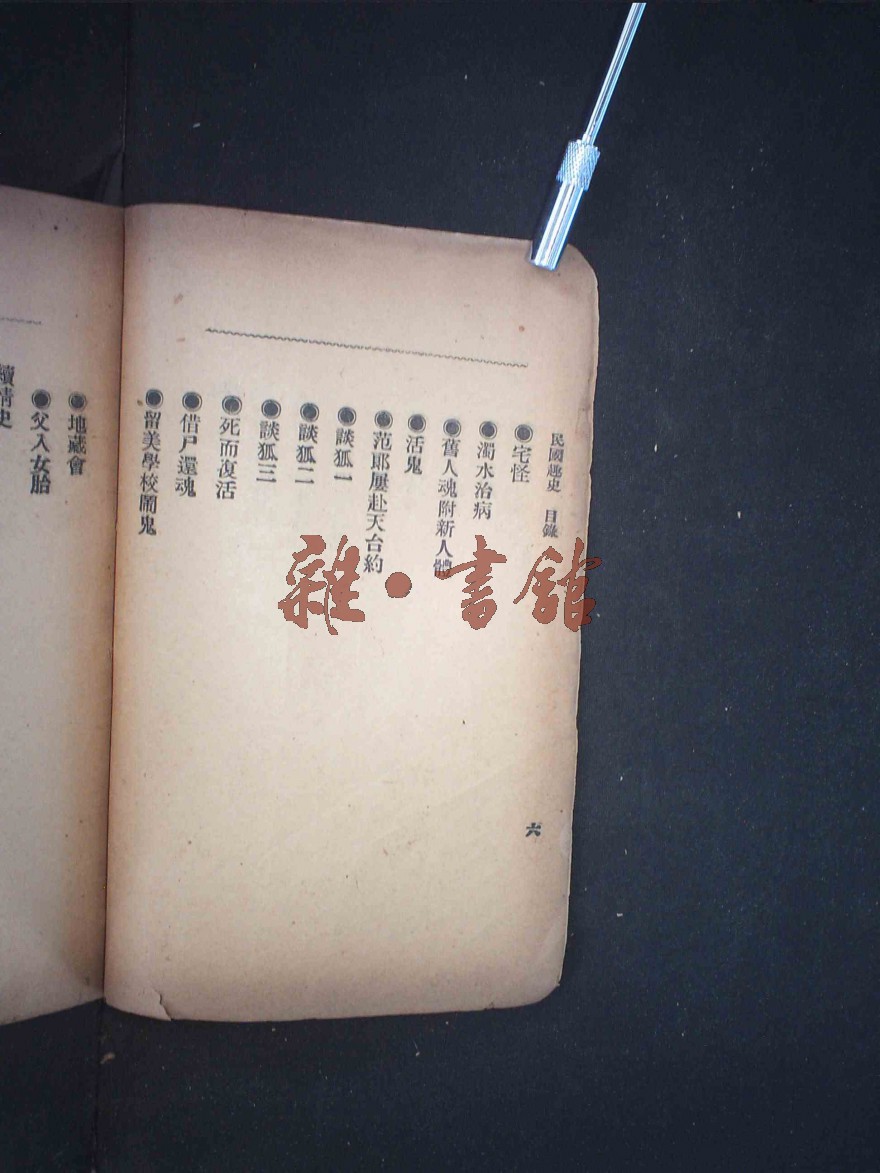 民國趣史　目錄
◉宅怪
◉濁水治病
◉舊人魂附新人體
◉活鬼
◉范郎屢赴天台約
◉談狐一
◉談狐二
◉談狐三
◉死而復活
◉借尸還魂
◉留美學校鬧鬼
六
◉地藏會
◉父入女胎
續情史
雜·書館